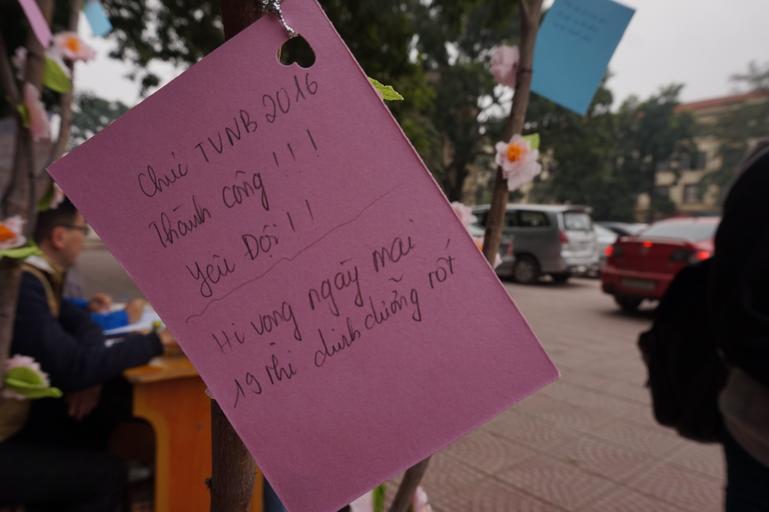 Chúc TVNB 2016
Thành công !!!
Yêu Đội !!
Hi vọng ngày mai
19 thi dinh dưỡng tốt